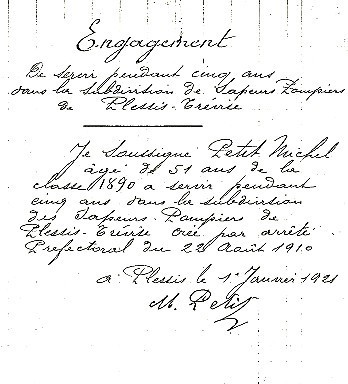 Engagement
De servir pendant cinq ans
dans la subdivision de Sapeurs Pompiers
de Plessis-Trévise
Je Soussigné Petit Michel
âgé de 51 ans de la
classe 1890 a servir pendant
cinq ans dans la subdivision
des Sapeurs Pompiers de
Plessis-Trévise créé par arrêté
Prefectoral du 22 Août 1910
a Plessis le 1er Janvier 1921
M. Petit